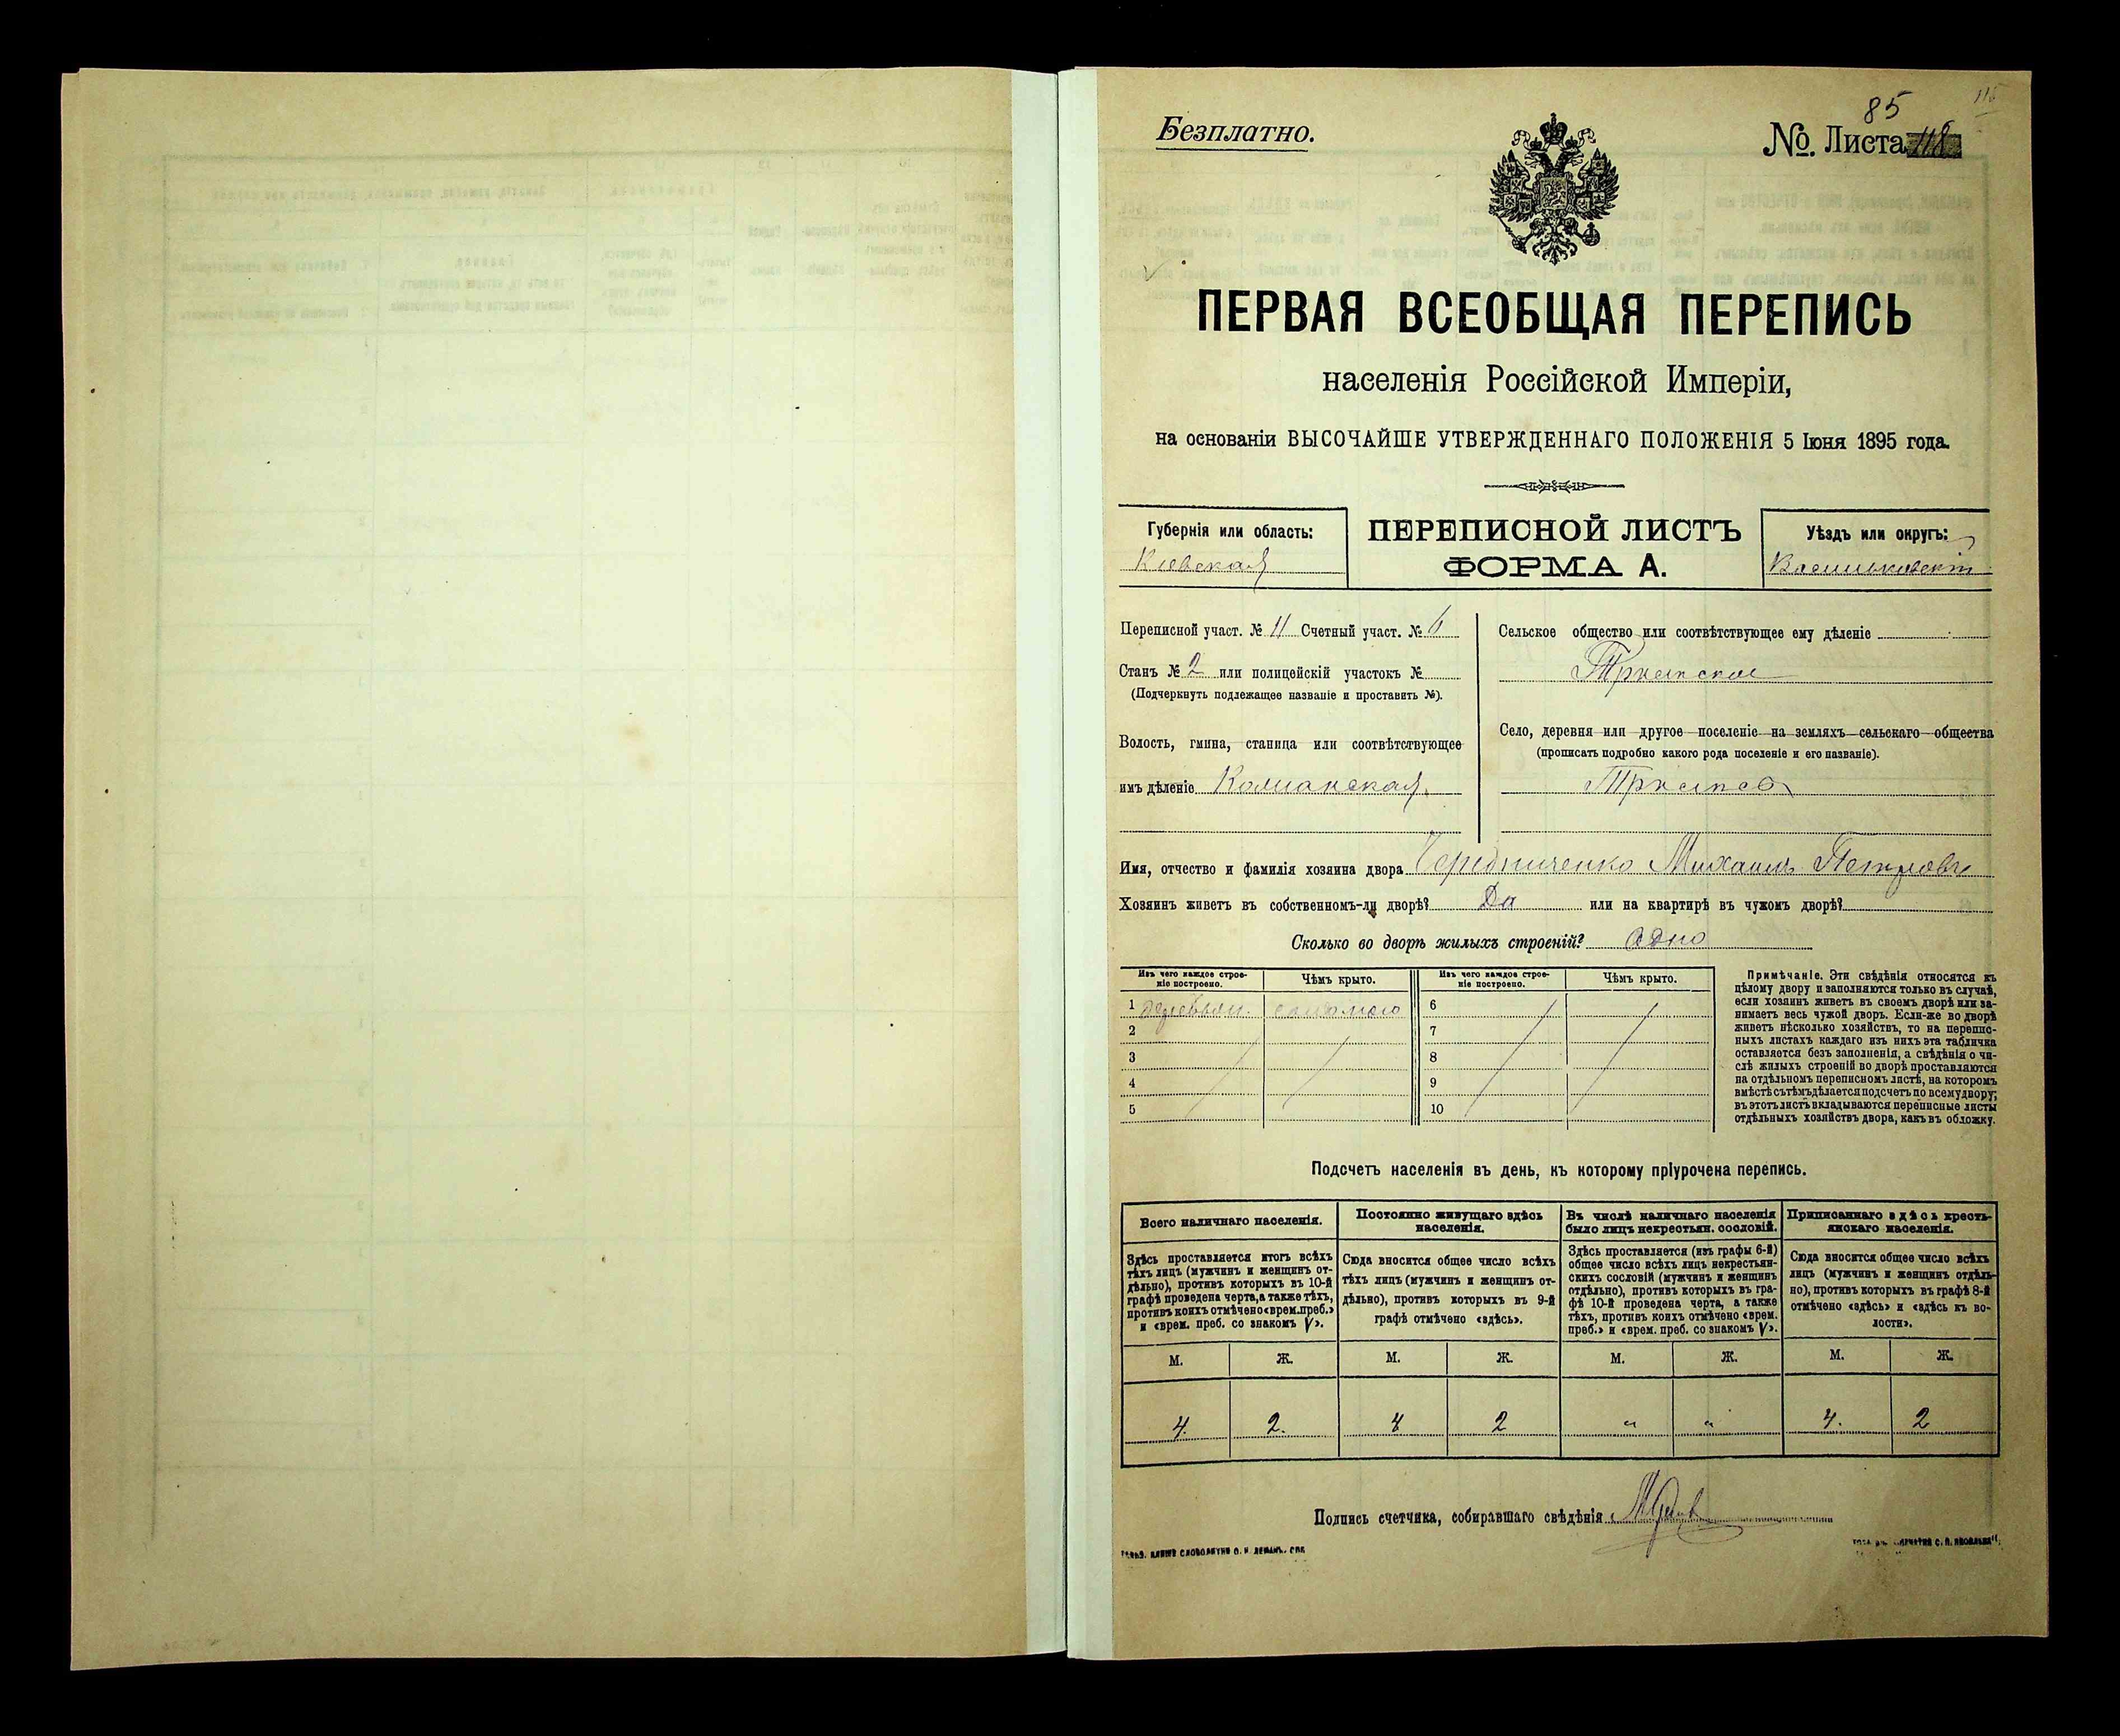 115
85
Безплатно.
№. Листа 118
ПЕРВАЯ ВСЕОБЩАЯ ПЕРЕПИСЬ
населенія Россійской Имперіи,
на основаніи ВЫСОЧАЙШЕ УТВЕРЖДЕННАГО ПОЛОЖЕНІЯ 5 Іюня 1895 года.
Губернія или область:
Кіевская
ПЕРЕПИСНОЙ ЛИСТЪ
ФОРМА А.
Уѣздъ или округъ:
Васильковскій
Переписной участ. № 11 Счетный участ. № 6
Станъ № 2 или полицейскій участокъ №
(Подчеркнуть подлежащее названіе и проставить №).
Волость, гмина, станица или соотвѣтствующее
имъ дѣленіе
Сельское общество или соотвѣтствующее ему дѣленіе
Село, деревня или другое поселеніе на земляхъ сельскаго общества
(прописать подробно какого рода поселеніе и его названіе).
Имя, отчество и фамилія хозяина двора Чередниченко Михаилъ Петровъ
Хозяинъ живетъ въ собственномъ-ли дворѣ? Да или на квартирѣ въ чужомъ дворѣ?
Сколько во дворѣ жилыхъ строеній? Одно
Изъ чего каждое строе-
ніе построено.
Чѣмъ крыто.
Изъ чего каждое строе-
ніе построено.
Чѣмъ крыто.
1 деревян. соломою 6
2 7
3 8
4 9
5 10
Примѣчаніе. Эти свѣдѣнія относятся къ
цѣлому двору и заполняются только въ случаѣ,
если хозяинъ живетъ въ своемъ дворѣ или за-
нимаетъ весь чужой дворъ. Если-же во дворѣ
живетъ нѣсколько хозяйствъ, то на перепис-
ныхъ листахъ каждаго изъ нихъ эта табличка
оставляется безъ заполненія, а свѣдѣнія о чи-
слѣ жилыхъ строеній во дворѣ проставляются
на отдѣльномъ переписномъ листѣ, на которомъ
вмѣстѣ съ тѣмъ дѣлается подсчетъ по всему двору;
въ этотъ листъ вкладываются переписные листы
отдѣльныхъ хозяйствъ двора, какъ въ обложку.
Подсчетъ населенія въ день, къ которому пріурочена перепись.
Всего наличнаго населенія.
Здѣсь проставляется итогъ всѣхъ
тѣхъ лицъ (мужчинъ и женщинъ от-
дѣльно), противъ которыхъ въ 10-й
графѣ проведена черта, а также тѣхъ,
противъ коихъ отмѣчено «врем. преб.»
и «врем. преб. со знакомъ V».
Постоянно живущаго здѣсь
населенія.
Сюда вносится общее число всѣхъ
тѣхъ лицъ (мужчинъ и женщинъ от-
дѣльно), противъ которыхъ въ 9-й
графѣ отмѣчено «здѣсь».
Въ числѣ наличнаго населенія
было лицъ некрестьян. сословій.
Здѣсь проставляется (изъ графы 6-й)
общее число всѣхъ лицъ некрестьян-
скихъ сословій (мужчинъ и женщинъ
отдѣльно), противъ которыхъ въ гра-
фѣ 10-й проведена черта, а также
тѣхъ, противъ коихъ отмѣчено «врем.
преб.» и «врем. преб. со знакомъ V».
Приписаннаго здѣсь кресть-
янскаго населенія.
Сюда вносится общее число всѣхъ
лицъ (мужчинъ и женщинъ отдѣль-
но), противъ которыхъ въ графѣ 8-й
отмѣчено «здѣсь» и «здѣсь къ во-
лости».
М. Ж. М. Ж. М. Ж. М. Ж.
4. 2. 4 2 " " 4. 2
Подпись счетчика, собиравшаго свѣдѣнія